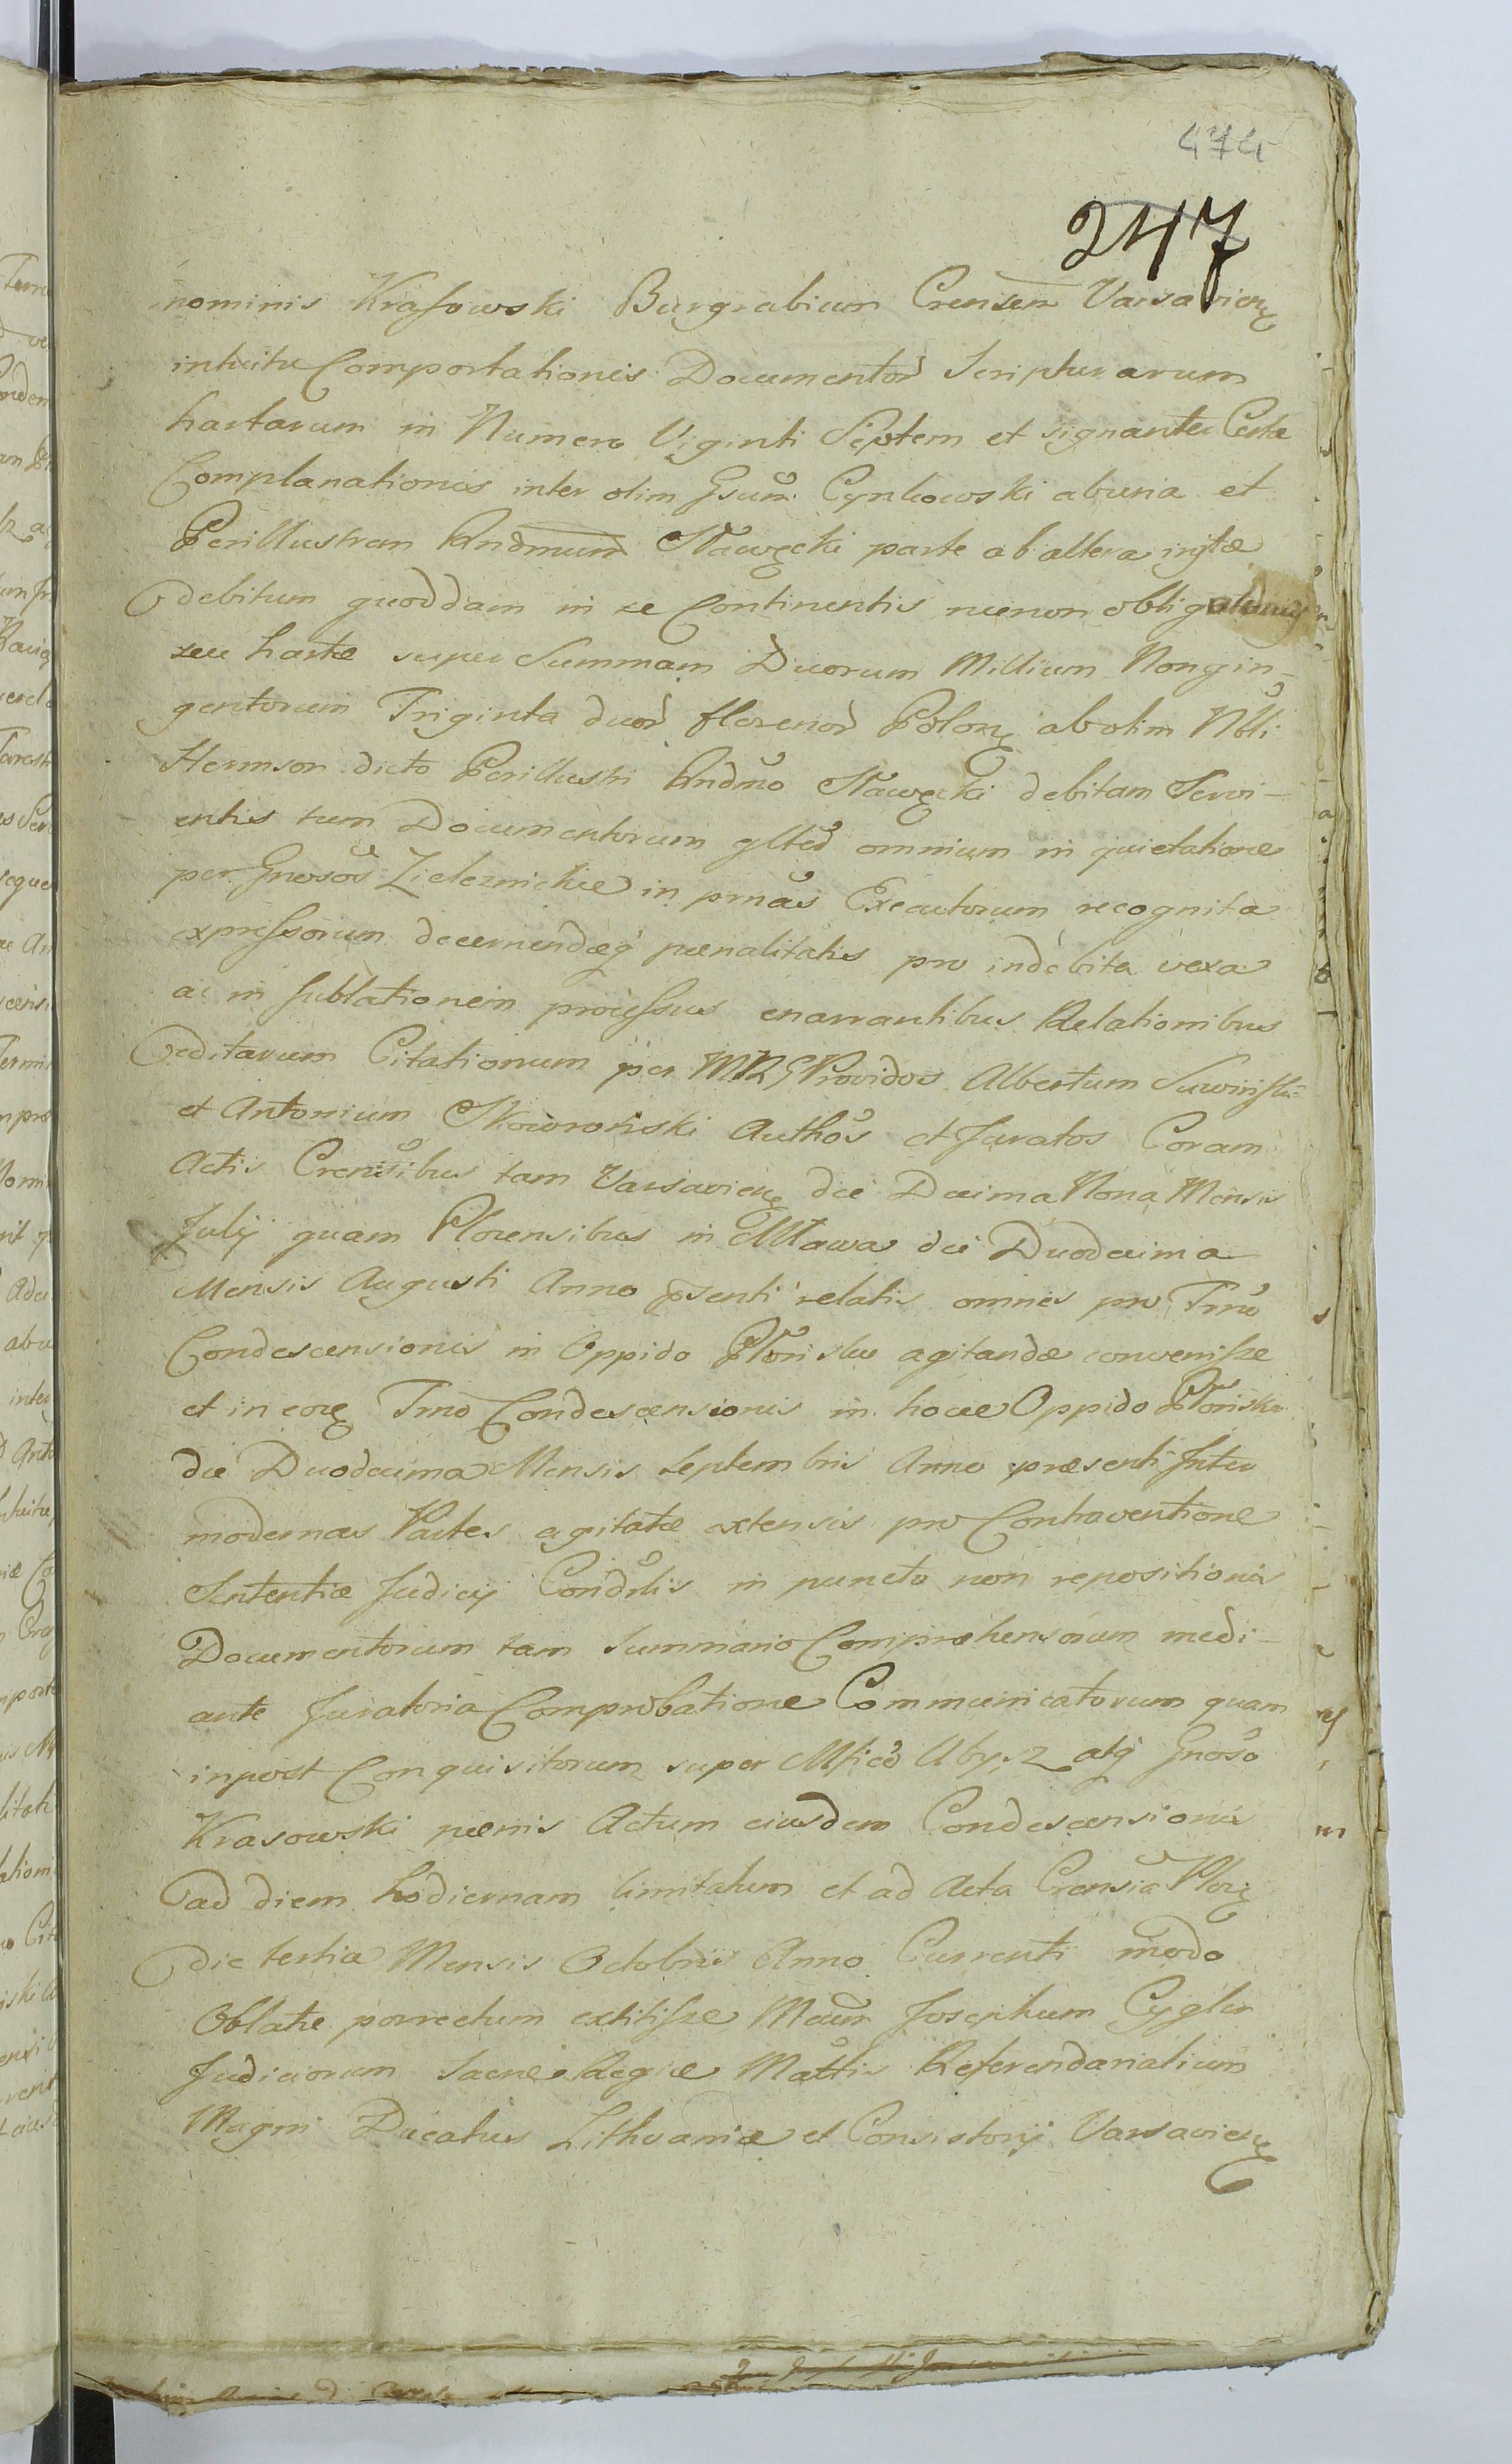 474
247
nominis Krasowski Burgrabium Crensem Varsavien
intuitu Comportationis Documentor Scripturarum
hartarum in Numero Viginti Septem et signanter
Complanationis inter olim Gsum Cynkowski ab una et
Perillustrem Rndmum Sławęcki parte ab altera
debitum quoddam in se Continentis necnon
seu hartæ super Summam Duorum Millium Nongin-
gentorum Triginta duor florenor Polon ab olim Nbli
Hermson dicto Perillustri Rndmo Sławęcki debitam Servi-
entis tum Documentorum omnium in quietatione
per Gnosos Zieleznickie in Executorum recognita
expressorum decernendæq pœnalitatis pro indebita vexa
ac in sublationem processus enarrantibus Relationibus
editarum Citationum per Providos Albertum
et Antonium Skowroński Authos et Juratos Coram
Actis Crensibus tam Varsavien die Decima Nona Mensis
Julij quam Plonensibus in Mława die Duodecima
Mensis Augusti Anno psenti relatis omnes pro Tmo
Condescensionis in Oppido Płońsku agitandæ convenisse
et in eoq Tmo Condescensionis in hocce Oppido Płońsku
die Duodecima Mensis Septembris Anno præsenti Inter
modernas Partes agitatæ extensis pro Contraventione
Sententiæ Judicij Condslis in puncto non repositionis
Documentorum tam Summario Comprehensorum medi-
ante Juratoria Comprobatione Communicatorum quam
inpost Conquisitorum super Mfico Abysz atq Gnoso
Krasowski pœnis Actum eiusdem Condescensionis
ad diem hodiernam limitatum et ad Acta Crensia Plon
die tertia Mensis Octobris Anno Currenti modo
Oblatæ porrectum extitisse Josephum Cygler
Judiciorum Sacræ Regiæ Mattis Referendarialium
Magni Ducatus Lithvaniæ et Consistorij Varsavien